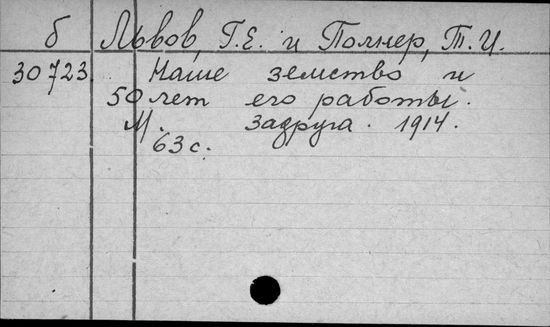 б Львов, Г.Е. и Полнер, Т.И.
30723 Наше земство и
50 лет его работы.
М. Задруга. 1914.
63 с.